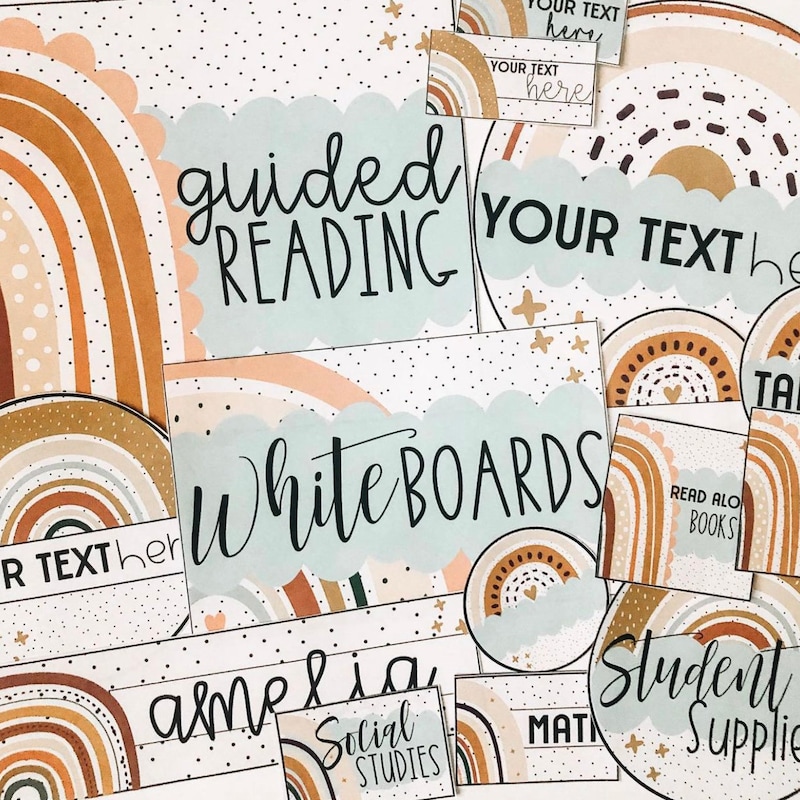 YOUR TEXT
here
YOUR TEXT
here
guided
READING
YOUR TEXT
whiteBOARDS
READ
BOOKS
TEXT her
amelia
Social
STUDIES
Student